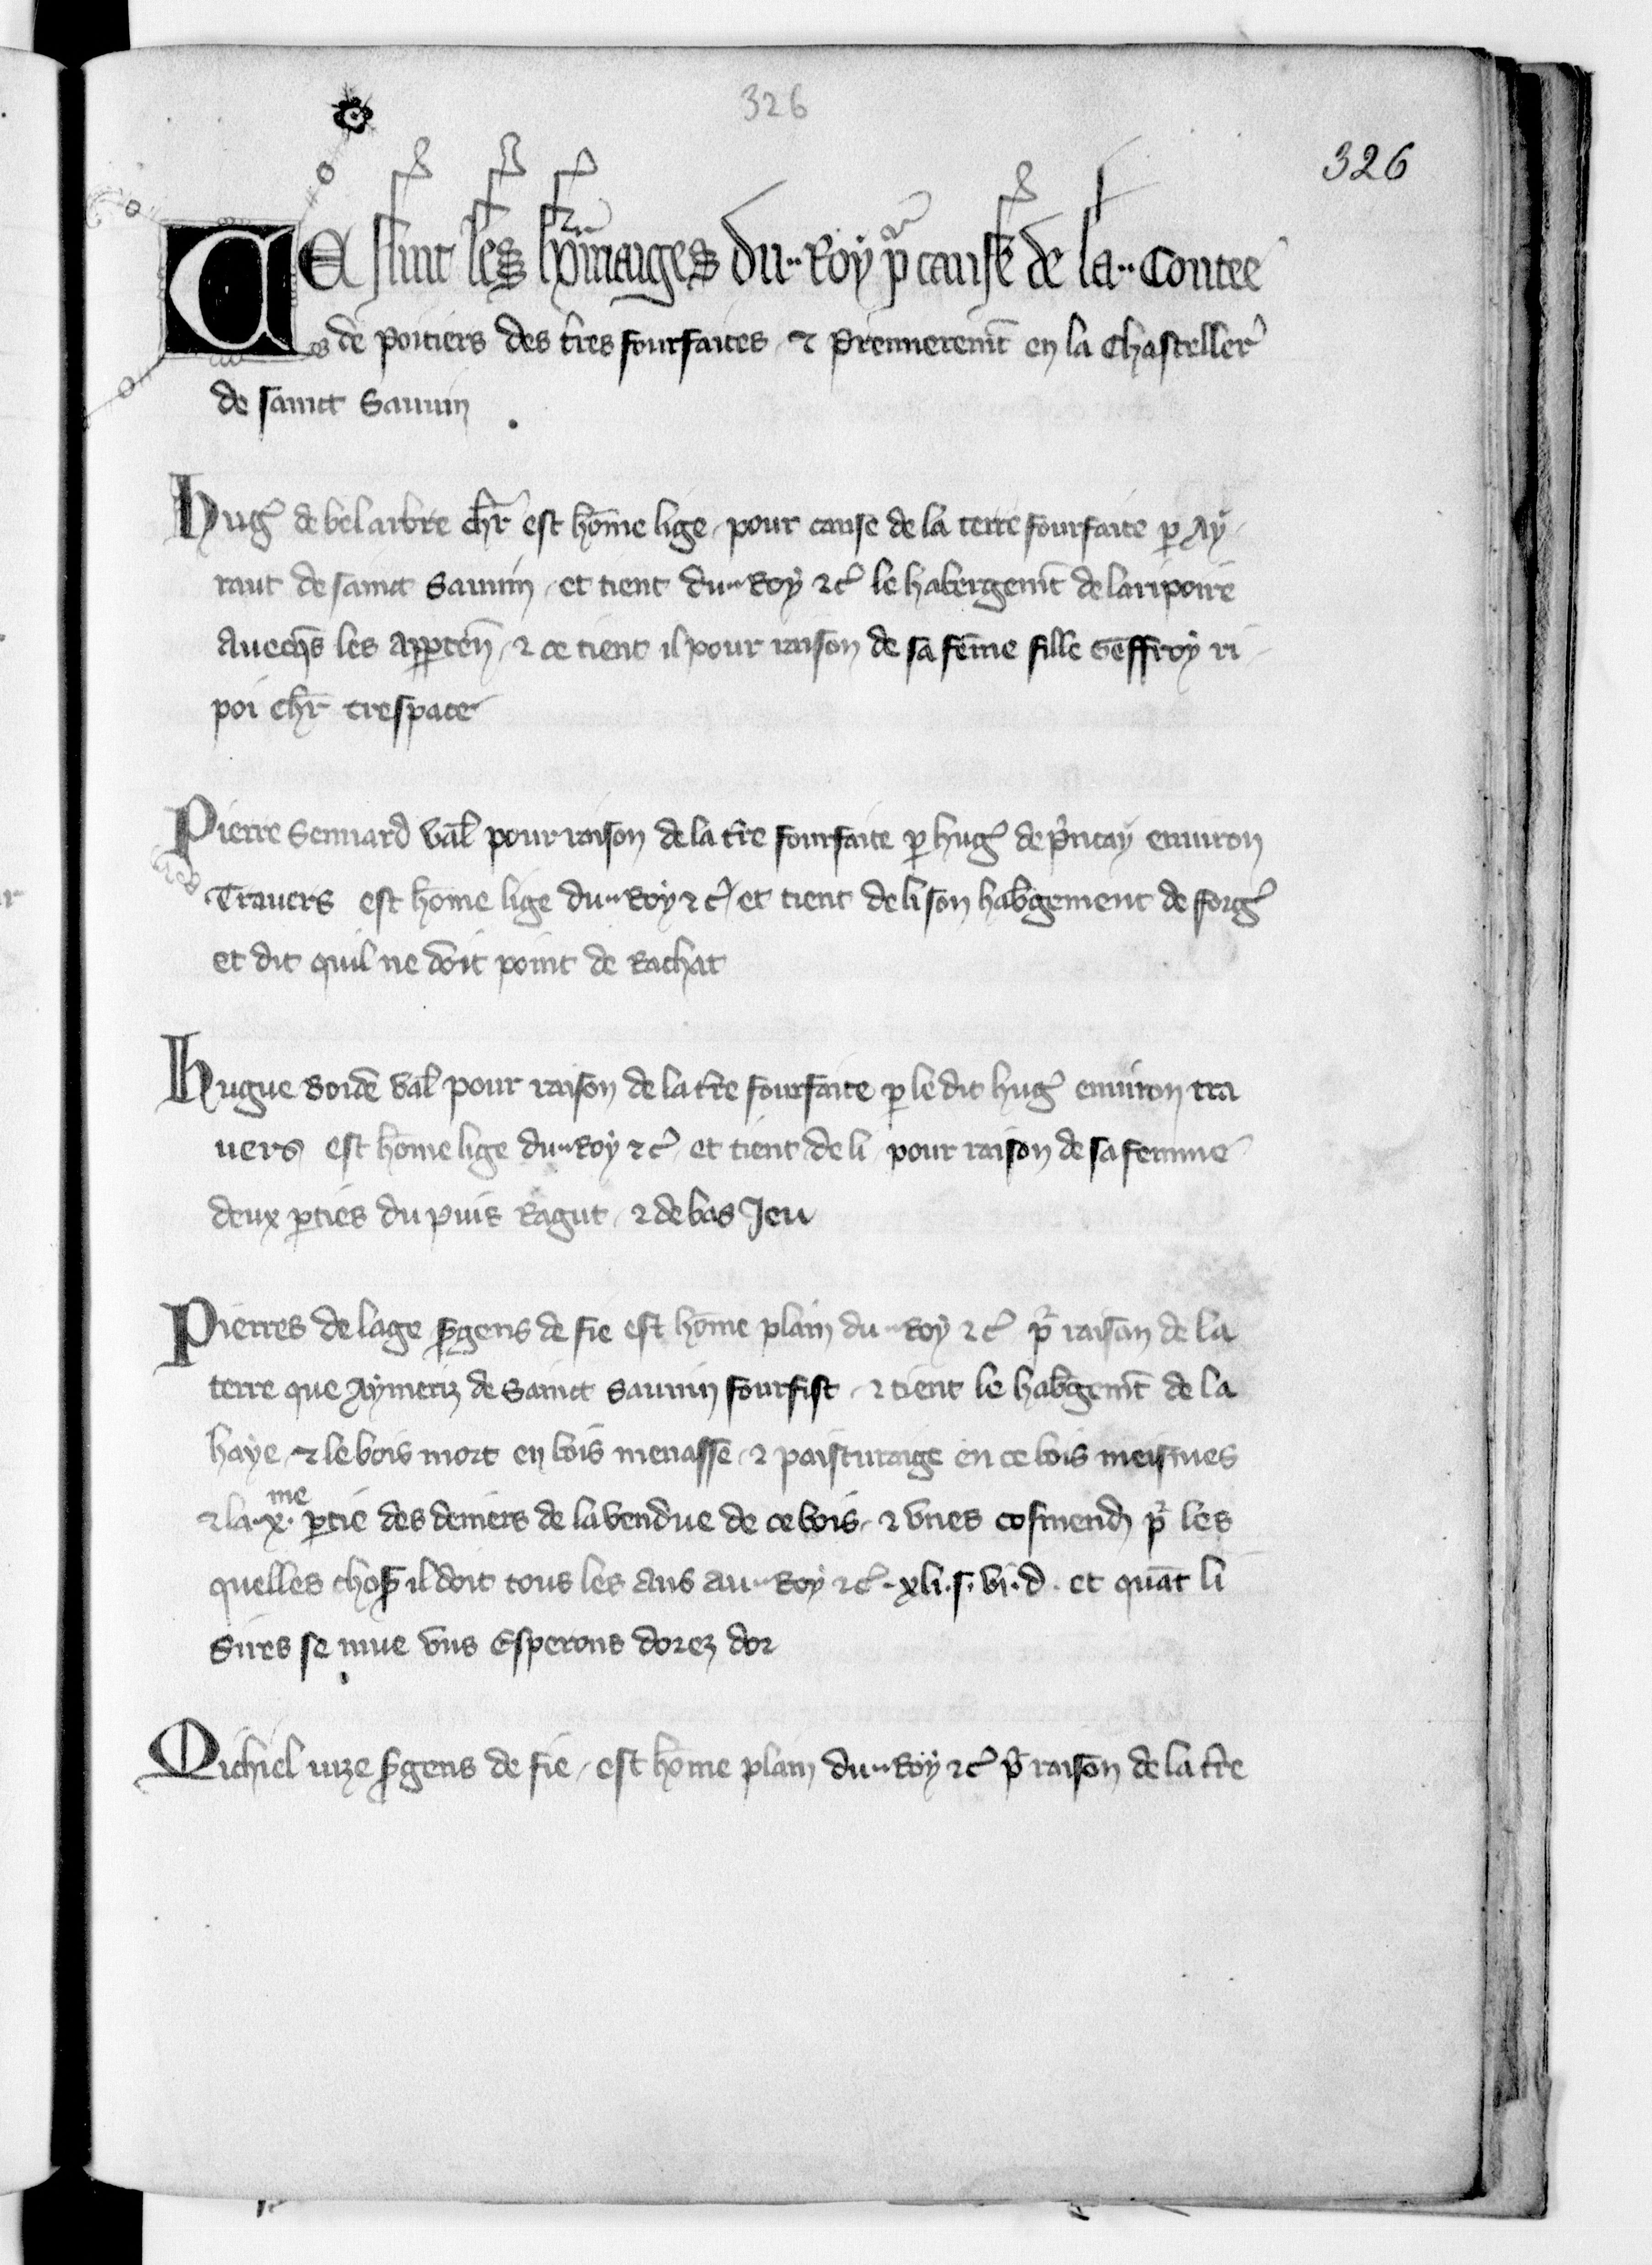 326
326
CE sunt les hōmaiges du Roy pᷣ cause de la Contee
de Poitiers des t̄res fourfaites ⁊ Premieremēt en la Chastelleꝛ̕
de sainct Sauuin
Hug̕ de bel arbre ch̄r est hōme lige pour cause de la terre fourfaite ꝑ Ay
raut de sainct Sauuin et tient du Roy ⁊ c̕ le habergemēt de la ripoire
Auecq̄s les Appten̄ ⁊ ce tient il pour raison de sa fēme fille Geffroy ri
poi ch̄r trespace
Pierre Senuard val̄ pour raison de la t̄re fourfaite ꝑ hug̕ de p̕ncay enuiron
Trauers est hōme lige du Roy ⁊ c̕ et tient de li son hab̕gement de forg̕
et dit quil ne doit point de Rachat
Hugue val̄ pour raison de la t̄re fourfaite ꝑ le dit hug̕ enuiron tra
uers est hōme lige du Roy ⁊ c̕ et tient de li pour raison de sa femme
deux ꝑties du puis Ragut ⁊ de bas Jeu
Pierres de lage s̕gens de fie est hōme plain du Roy ⁊ c̕ pᷣ raison de la
terre que Aymeriz de Sainct Sauuin fourfist ⁊ tient le hab̕gemēt de la
haye ⁊ le bois mort en bois menasse ⁊ paisturaige en ce bois meismes
⁊ la .x.me ꝑtie des deniers de la vendue de ce bois ⁊ vnes cosmend̕ pᷣ les
quelles chos̕ il doit tous les Ans au Roy ⁊ c̕ .xli.s.vi.d. et quāt li
Sires se mue vns Esperons dorez dor
Michiel uize s̕gens de fie est hōme plain du Roy ⁊ c̕ pᷣ raison de la t̄re